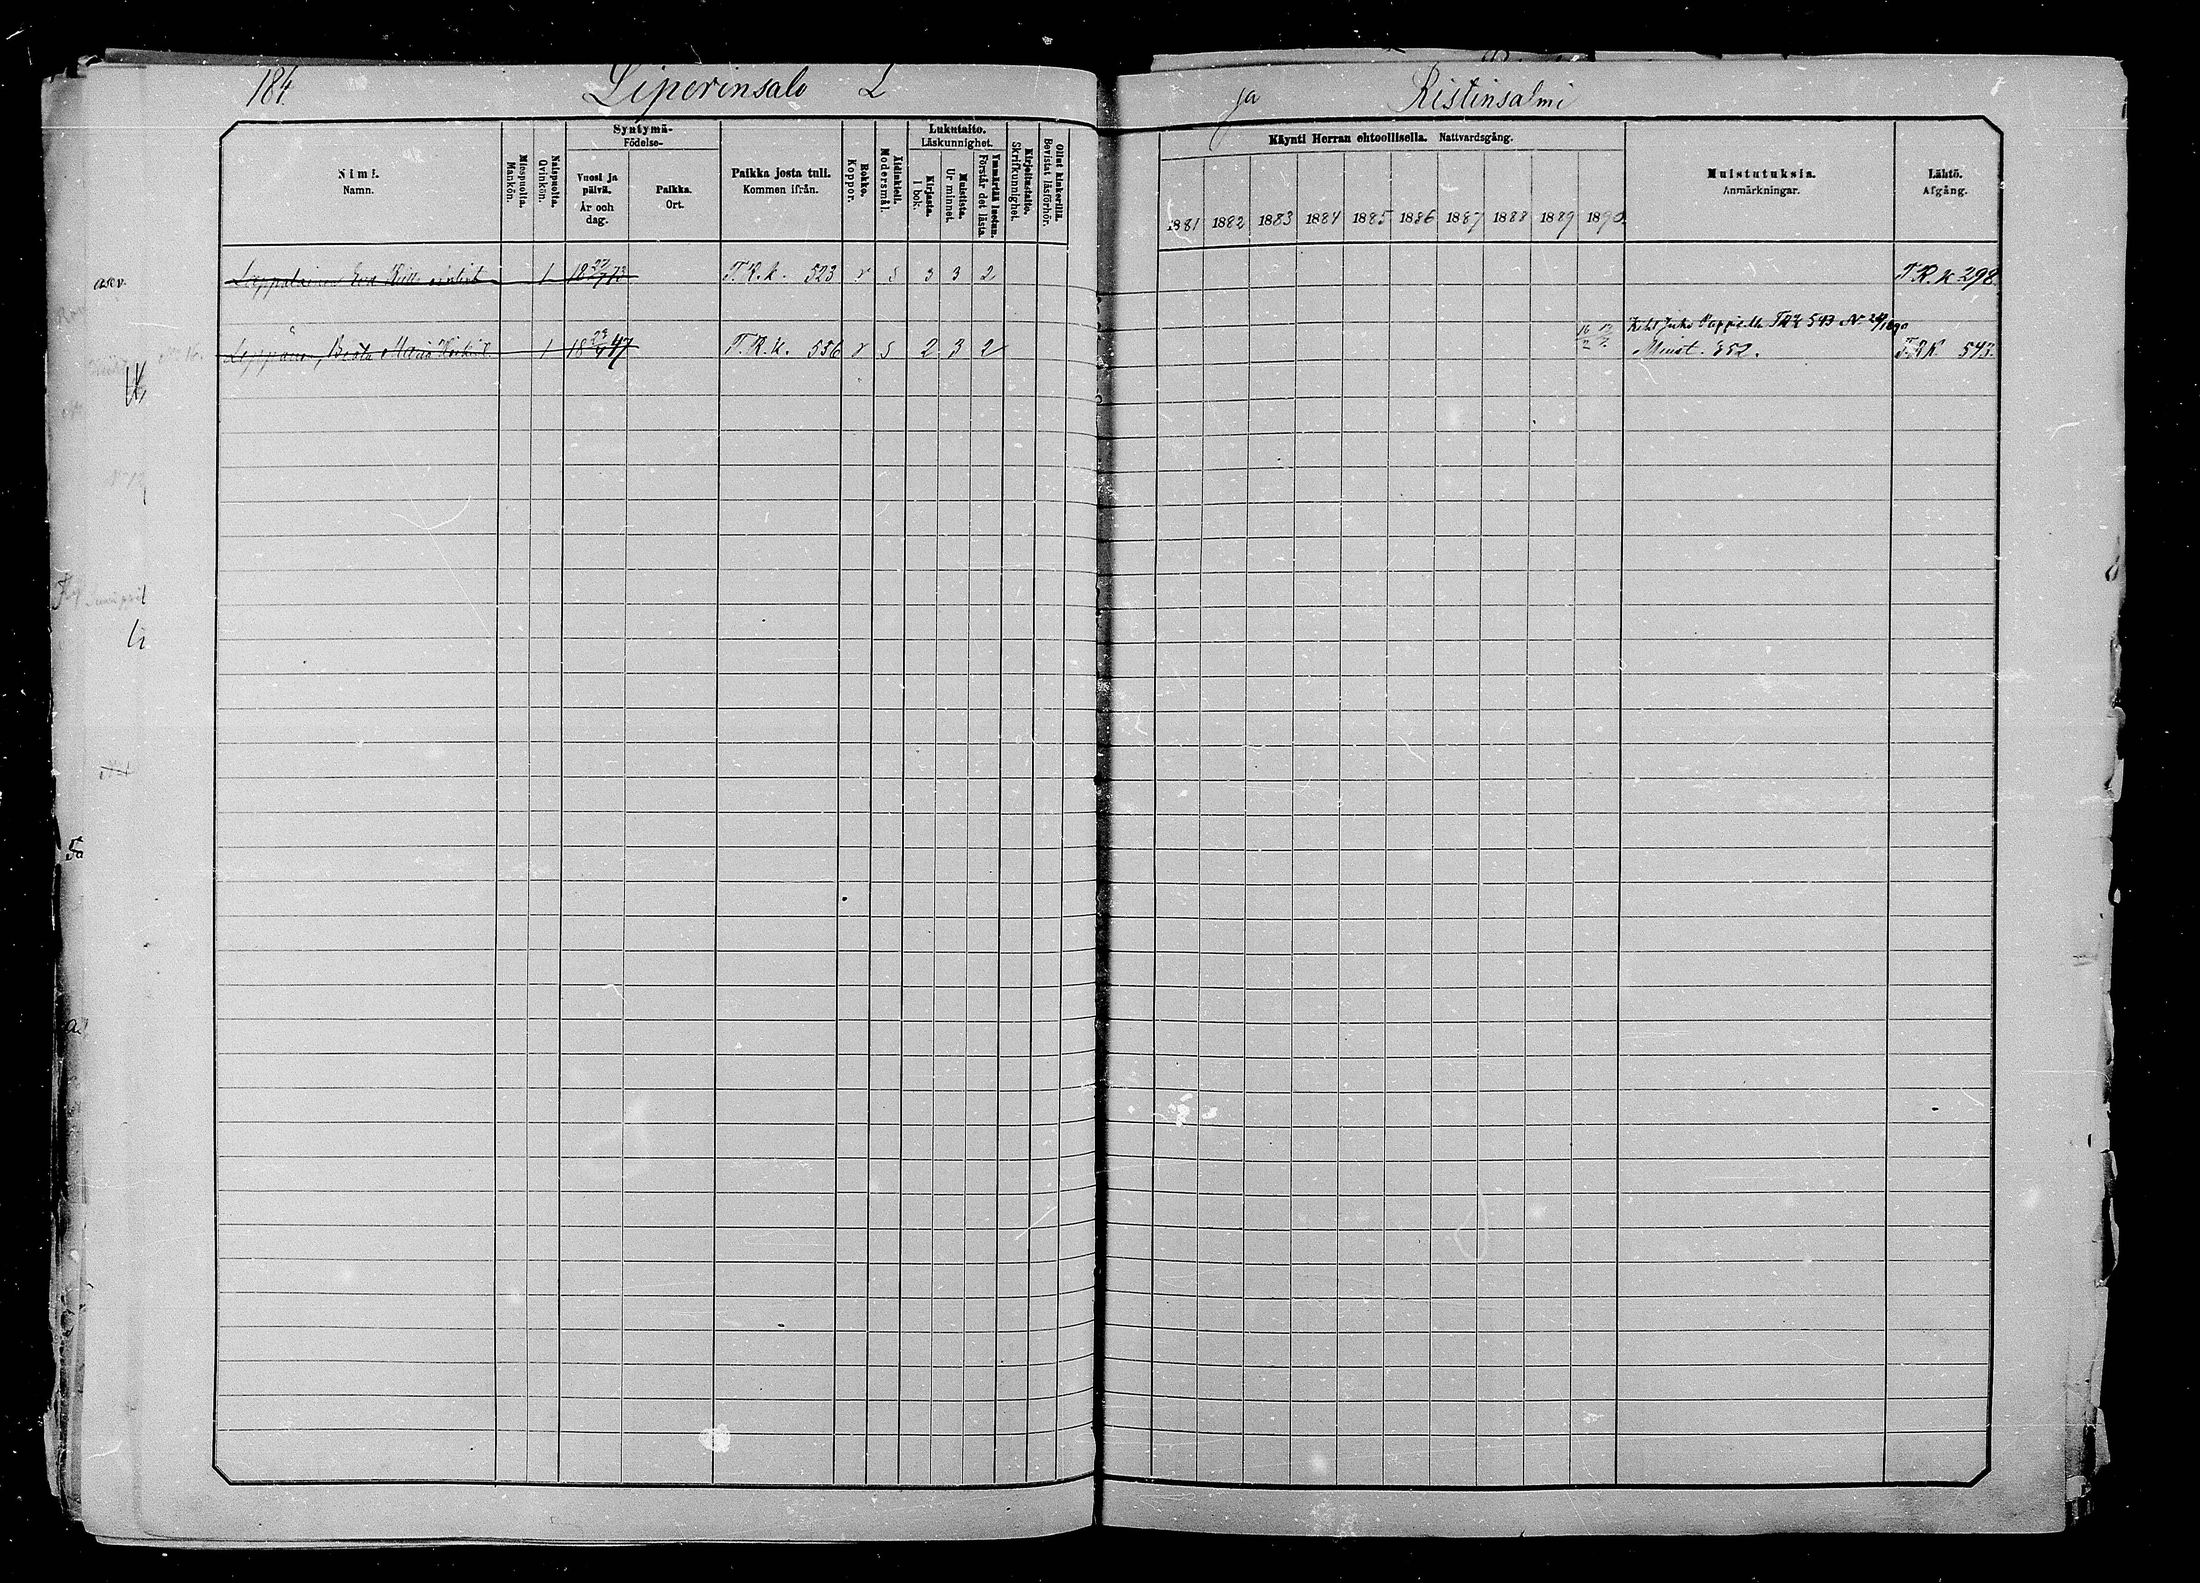 184. Liperinsalo L ja Ristinsalmi
Nimi.
Namn.
Miespuolia.
Mankön.
Naispuolia.
Qvinkön.
Syntymä-
Födelse-
Vuosi ja
päivä.
År och
dag.
Paikka.
Ort.
Paikka josta tuli.
Kommen ifrån.
Rokko.
Koppor.
Äidinkieli.
Modersmål.
Lukutaito.
Läskunnighet.
Kirjasta.
I bok.
Muistista.
Ur minnet.
Ymmärtää luetun.
Förstår det lästa.
Kirjoitustaito.
Skrifkunnighet.
Ollut kinkerillä.
Bevistat läsförhör.
Käynti Herran ehtoollisella. Nattvardsgång.
1881 1882 1883 1884 1885 1886 1887 1888 1889 1890
Muistutuksia.
Anmärkningar.
Lähtö.
Afgång.
Lappalainen Eva 1 18 73 T.R.k. 523 r s 3 3 2 T.R.k 298
Juho T.R.k 543
Leppänen, Beata Maria 1 18 47 T.R.k. 556 r s 2 3 2 Muist. 352. T.R.k. 543.